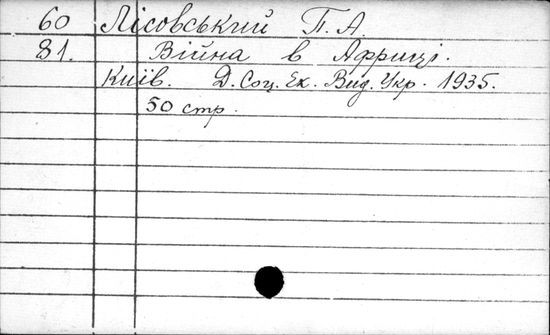 60 Лісовський П. А.
81. Війна в Африці.
Київ. Д. Соц. Ек. Вид. Укр. 1935.
50 стр.